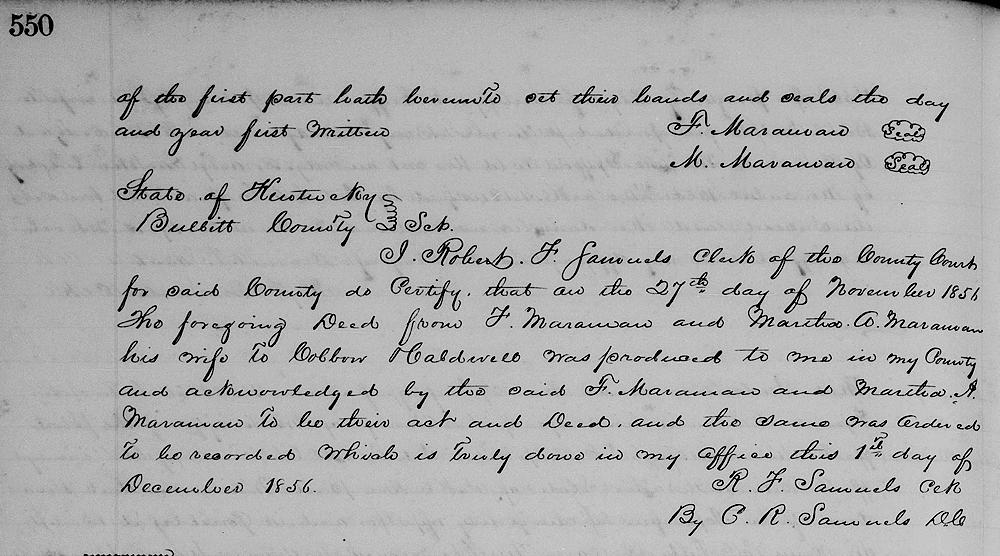 550
of the first part hath hereunto set their hands and seals the day
and year first Written F. Maraman Seal
M. Maraman Seal
State of Kentucky
Bullitt County Sct.
I. Robert. F. Samuels Clerk of the County Court
for said County do Certify. that on the 27th day of November 1856
The foregoing Deed from F. Maraman and Martha. A. Maraman
his wife to Caldwell was produced to me in my County
and acknowledged by the said F. Maraman and Martha. A.
Maraman to be their act and Deed. and the same was ordered
to be recorded which is truly done in my office this 1st day of
December 1856. R. F. Samuels Clk
By C. R. Samuels D.C